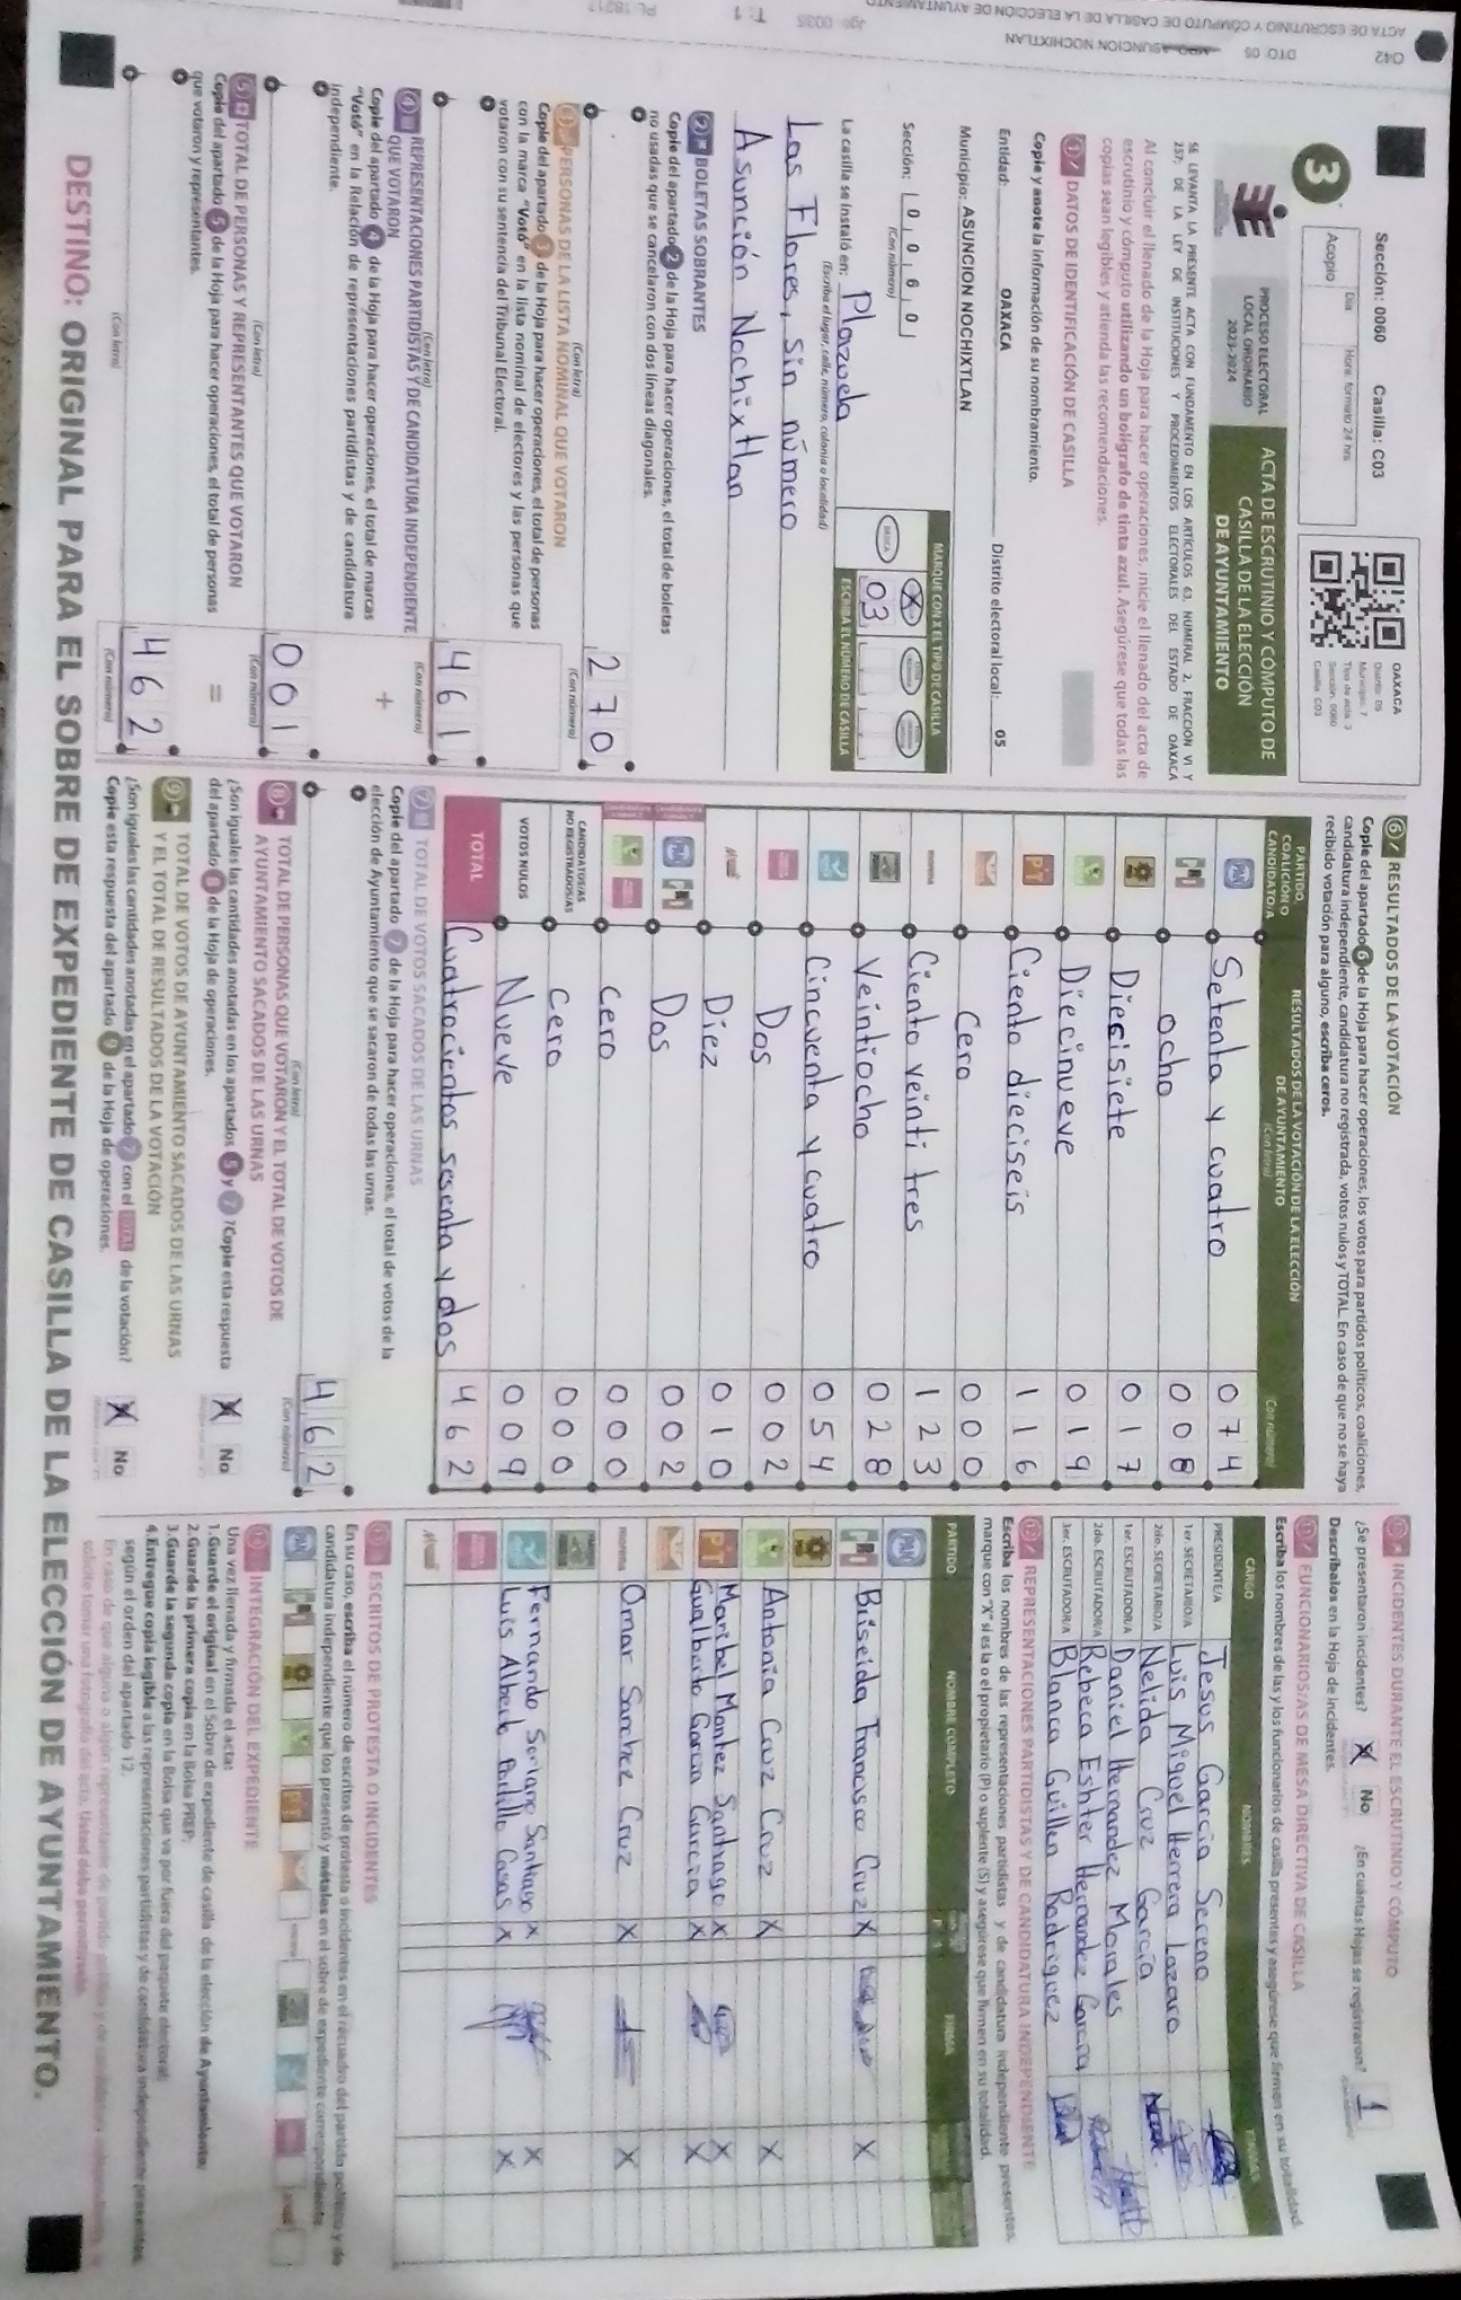 Sección: 0060 Casilla: C03
3
Día Hora: formato 24 hrs
Acopio
OAXACA
Distrito: 05
Municipio: 7
Tipo de acta: 3
Sección: 0060
Casilla: C03
PROCESO ELECTORAL
LOCAL ORDINARIO
2023-2024
ACTA DE ESCRUTINIO Y CÓMPUTO DE
CASILLA DE LA ELECCIÓN
DE AYUNTAMIENTO
SE LEVANTA LA PRESENTE ACTA CON FUNDAMENTO EN LOS ARTÍCULOS 63, NUMERAL 2, FRACCIÓN VI Y
257; DE LA LEY DE INSTITUCIONES Y PROCEDIMIENTOS ELECTORALES DEL ESTADO DE OAXACA
Al concluir el llenado de la Hoja para hacer operaciones, inicie el llenado del acta de
escrutinio y cómputo utilizando un bolígrafo de tinta azul. Asegúrese que todas las
copias sean legibles y atienda las recomendaciones.
1 DATOS DE IDENTIFICACIÓN DE CASILLA
Copie y anote la información de su nombramiento.
Entidad: OAXACA Distrito electoral local: 05
Municipio: ASUNCION NOCHIXTLAN
Sección: 0 0 6 0
(Con número)
MARQUE CON X EL TIPO DE CASILLA
BÁSICA X
ESCRIBA EL NÚMERO DE CASILLA
03
La casilla se instaló en: Plazuela
(Escriba el lugar, calle, número, colonia o localidad)
Las Flores, sin número
Asunción Nochixtlan
2 BOLETAS SOBRANTES
Copie del apartado 2 de la Hoja para hacer operaciones, el total de boletas
no usadas que se cancelaron con dos líneas diagonales.
270
(Con letra) (Con número)
3 PERSONAS DE LA LISTA NOMINAL QUE VOTARON
Copie del apartado 3 de la Hoja para hacer operaciones, el total de personas
con la marca "Votó" en la lista nominal de electores y las personas que
votaron con su sentencia del Tribunal Electoral.
461
(Con letra) (Con número)
4 REPRESENTACIONES PARTIDISTAS Y DE CANDIDATURA INDEPENDIENTE
QUE VOTARON
+
Copie del apartado 4 de la Hoja para hacer operaciones, el total de marcas
"Votó" en la Relación de representaciones partidistas y de candidatura
independiente.
001
(Con letra) (Con número)
5 TOTAL DE PERSONAS Y REPRESENTANTES QUE VOTARON
=
Copie del apartado 5 de la Hoja para hacer operaciones, el total de personas
que votaron y representantes.
462
(Con letra) (Con número)
6 RESULTADOS DE LA VOTACIÓN
Copie del apartado 6 de la Hoja para hacer operaciones, los votos para partidos políticos, coaliciones,
candidatura independiente, candidatura no registrada, votos nulos y TOTAL. En caso de que no se haya
recibido votación para alguno, escriba ceros.
PARTIDO, COALICIÓN O CANDIDATO/A RESULTADOS DE LA VOTACIÓN DE LA ELECCIÓN DE AYUNTAMIENTO (Con letra) (Con número)
PAN Setenta y cuatro 074
PRI ocho 008
Diecisiete 017
Diecinueve 019
PT Ciento dieciseis 116
Cero 000
morena Ciento veinti tres 123
Veintiocho 028
Cincuenta y cuatro 054
Dos 002
Diez 010
PAN PRI Dos 002
Cero 000
CANDIDATOS/AS NO REGISTRADOS/AS Cero 000
VOTOS NULOS Nueve 009
TOTAL Cuatrocientos sesenta y dos 462
7 TOTAL DE VOTOS SACADOS DE LAS URNAS
Copie del apartado 7 de la Hoja para hacer operaciones, el total de votos de la
elección de Ayuntamiento que se sacaron de todas las urnas.
462
(Con letra) (Con número)
8 TOTAL DE PERSONAS QUE VOTARON Y EL TOTAL DE VOTOS DE
AYUNTAMIENTO SACADOS DE LAS URNAS
¿Son iguales las cantidades anotadas en los apartados 5 y 7? Copie esta respuesta
del apartado 8 de la Hoja de operaciones.
X No
9 TOTAL DE VOTOS DE AYUNTAMIENTO SACADOS DE LAS URNAS
Y EL TOTAL DE RESULTADOS DE LA VOTACIÓN
¿Son iguales las cantidades anotadas en el apartado 7 con el TOTAL de la votación?
Copie esta respuesta del apartado 9 de la Hoja de operaciones.
X No
INCIDENTES DURANTE EL ESCRUTINIO Y CÓMPUTO
¿Se presentaron incidentes? X No ¿En cuántas Hojas se registraron? 1
Descríbalos en la Hoja de incidentes.
11 FUNCIONARIOS/AS DE MESA DIRECTIVA DE CASILLA
Escriba los nombres de las y los funcionarios de casilla presentes y asegúrese que firmen en su totalidad.
CARGO NOMBRES FIRMAS
PRESIDENTE/A Jesus Garcia Serreno
1er. SECRETARIO/A Luis Miguel Herrera Lazaro
2do. SECRETARIO/A Nelida Cruz García
1er. ESCRUTADOR/A Daniel Hernandez Morales
2do. ESCRUTADOR/A Rebeca Eshter Hernandez Garcia
3er. ESCRUTADOR/A Blanca Guillen Rodriguez
12 REPRESENTACIONES PARTIDISTAS Y DE CANDIDATURA INDEPENDIENTE
Escriba los nombres de las representaciones partidistas y de candidatura independiente presentes,
marque con "X" si es la o el propietario (P) o suplente (S) y asegúrese que firmen en su totalidad.
PARTIDO NOMBRE COMPLETO P S FIRMA
PAN
PRI Briseida Francisco Cruz X X
Antonia Cruz Cruz X X
PT Maribel Montez Santiago X X
Gualberto Garcia Garcia X X
morena Omar Sanchez Cruz X X
Fernando Soriano Santiago X X
Luis Alberto Portillo Casas X X
13 ESCRITOS DE PROTESTA O INCIDENTES
En su caso, escriba el número de escritos de protesta o incidentes en el recuadro del partido político y de
candidatura independiente que los presentó y métalos en el sobre de expediente correspondiente.
INTEGRACIÓN DEL EXPEDIENTE
Una vez llenada y firmada el acta:
1.Guarde el original en el Sobre de expediente de casilla de la elección de Ayuntamiento;
2.Guarde la primera copia en la Bolsa PREP;
3.Guarde la segunda copia en la Bolsa que va por fuera del paquete electoral;
4.Entregue copia legible a las representaciones partidistas y de candidatura independiente presentes,
según el orden del apartado 12.
DESTINO: ORIGINAL PARA EL SOBRE DE EXPEDIENTE DE CASILLA DE LA ELECCIÓN DE AYUNTAMIENTO.
042 DTO 05 ASUNCION NOCHIXTLAN
ACTA DE ESCRUTINIO Y CÓMPUTO DE CASILLA DE LA ELECCIÓN DE AYUNTAMIENTO
T: 1